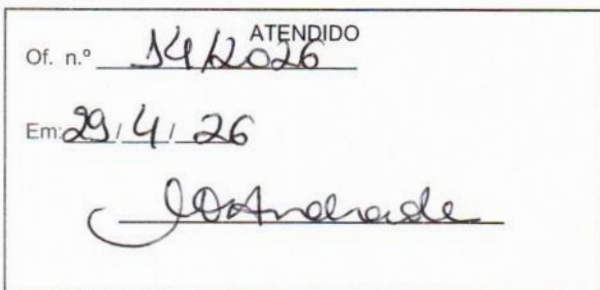 ATENDIDO
Of. n.º 14/2026
Em: 29/4/26
Andrade